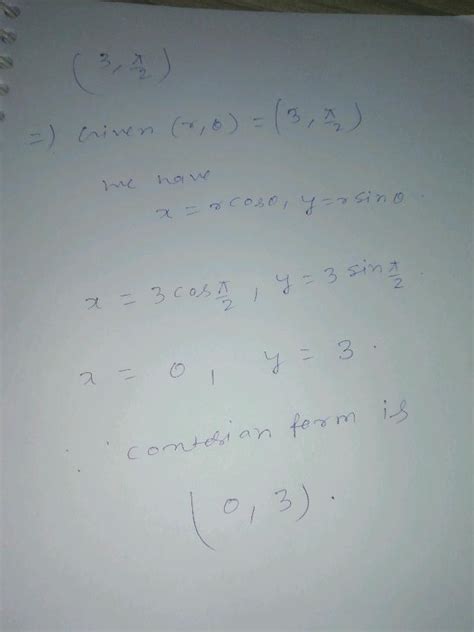 (3, π/2)
=) Given (r, θ) = (3, π/2)
we have
x = r cosθ, y = r sinθ.
x = 3 cos π/2, y = 3 sin π/2.
x = 0, y = 3.
∵ contesian form is
(0, 3).